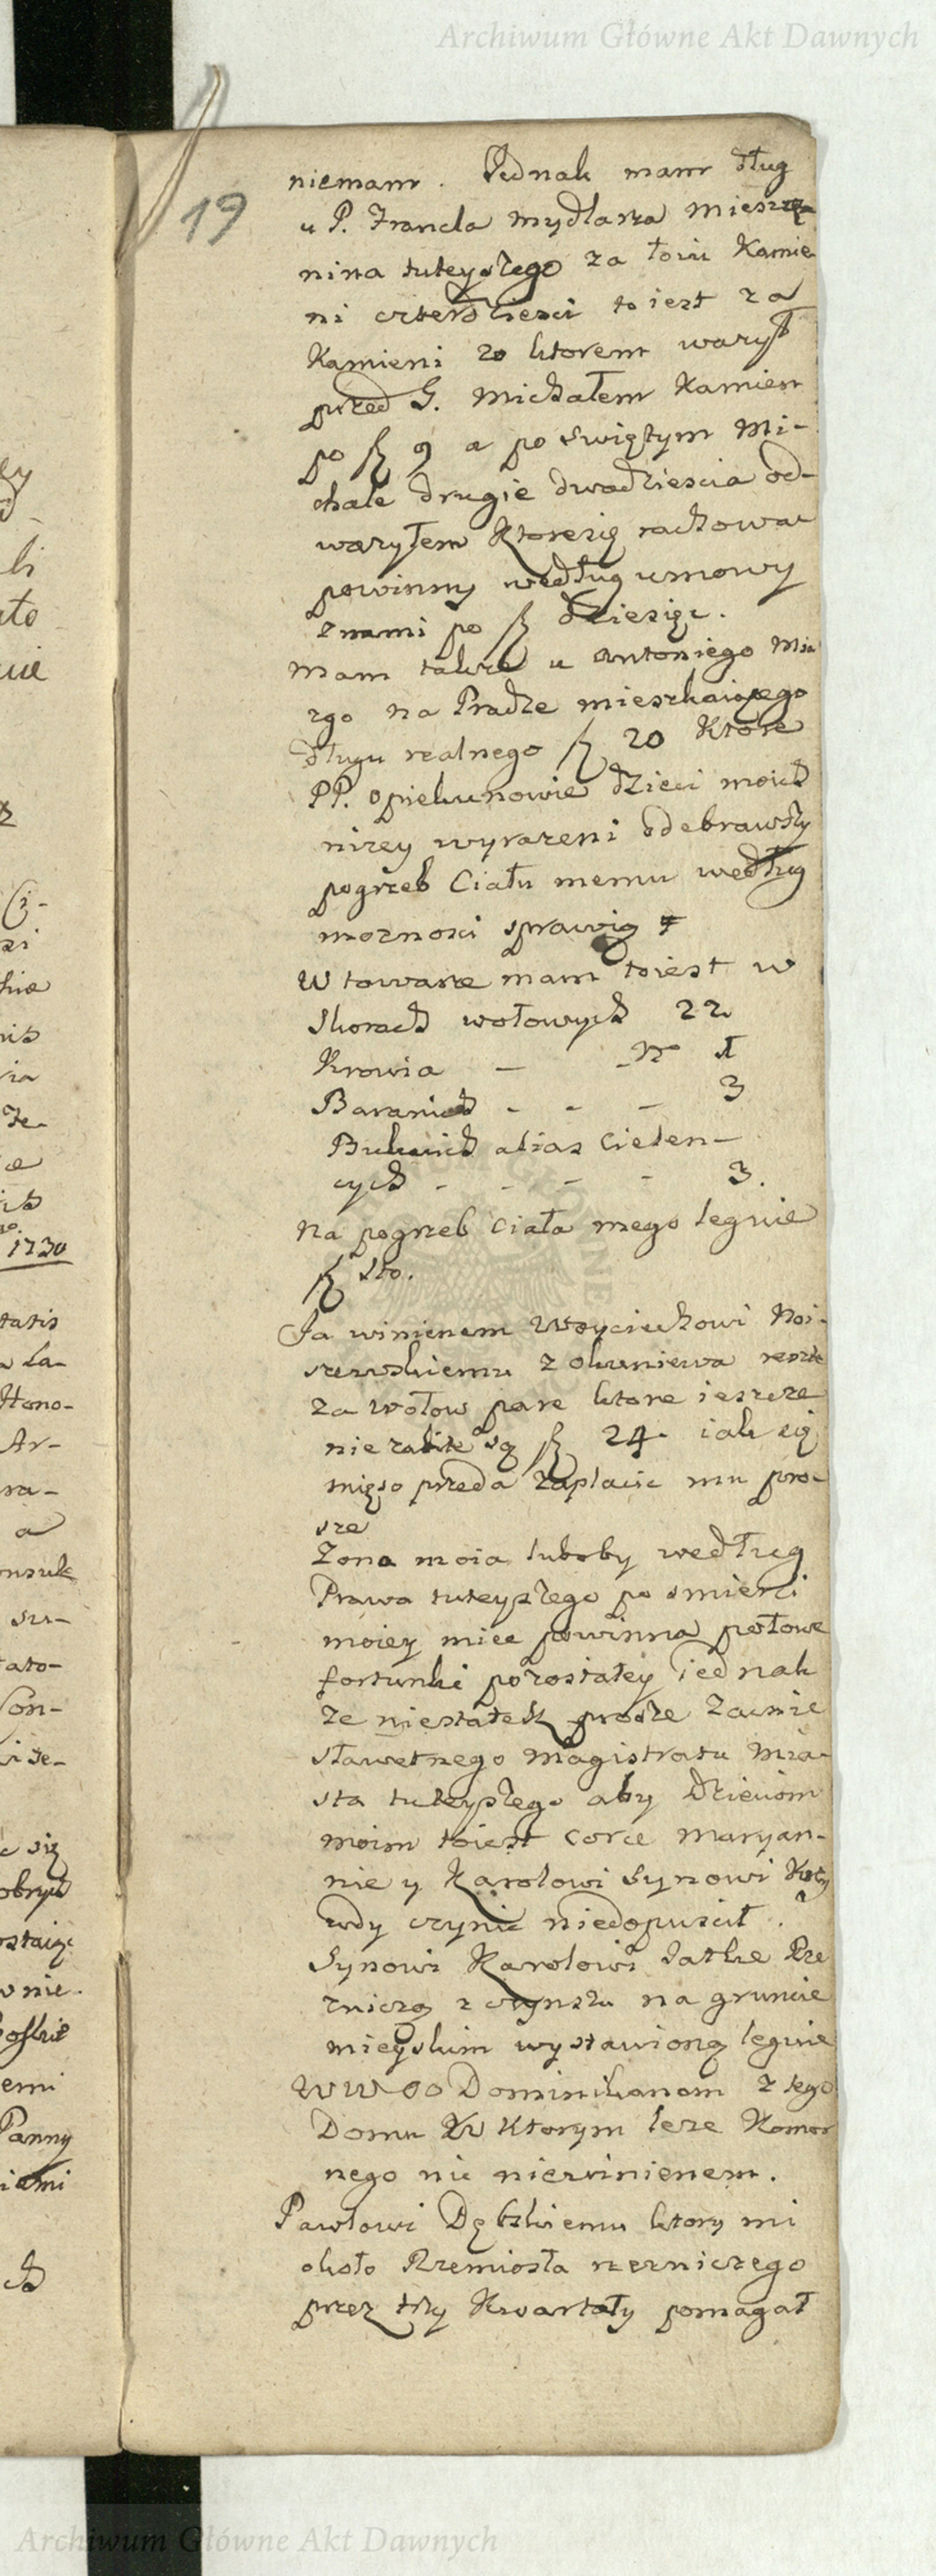 Archiwum Główne Akt Dawnych
19
niemam. Jednak mam dług
u P. Francla mydlarza miesscza-
nina tuteyszego za łoiu Kamie
ni czterdziesci to iest za
Kamieni 20 ktorem warzył
przed S. Michałem Kamien
po fl 9 a po swiętym Mi-
chale drugie dwadziescia od-
warzyłem Ktoresię rachowac
powinny według umowy
znami po fl dziesięc.
Mam takze u Antoniego
na Pradze mieszkaiącego
długu realnego fl 20 Ktore
PP. opiekunowie dzieci moich
nizey wyrazeni odebrawszy
pogrzeb Ciału memu według
moznosci sprawią
W towarze mam toiest w
Skorach wołowych 22
Krowia — N 1
Baranich - - — 3
Bukwich alias Cielen-
cych - - - - 3.
Na pogrzeb Ciała mego leguie
fl sto.
Ja winienem Woyciechowi Koi-
szewskiemu z Okuniewa reszte
za wołow pare ktore ieszcze
nie zabite są fl 24. iak się
mięso przeda zaplacic mu pro-
sze
Zona moia luboby według
Prawa tuteyszego po smierci
moiey miec powinna połowe
fortunki pozostałey iednak
ze niestatek prosze Zacnie
sławetnego Magistratu Mia-
sta tuteyszego aby Dzieciom
moim toiest corce Maryan-
nie y Karolowi Synowi Krzy
wdy czynic niedopuscił.
Synowi Karolowi Jatke Rze
zniczą z czynszu na gruncie
mieyskim wystawioną leguie
WW OO Dominikanom z tego
Domu w Ktorym leze Komor
nego nic niewinienem.
Pawłowi Dębskiemu ktory mi
około Rzemiosła rzezniczego
przez trzy Kwartały pomagał
1730
Archiwum Główne Akt Dawnych